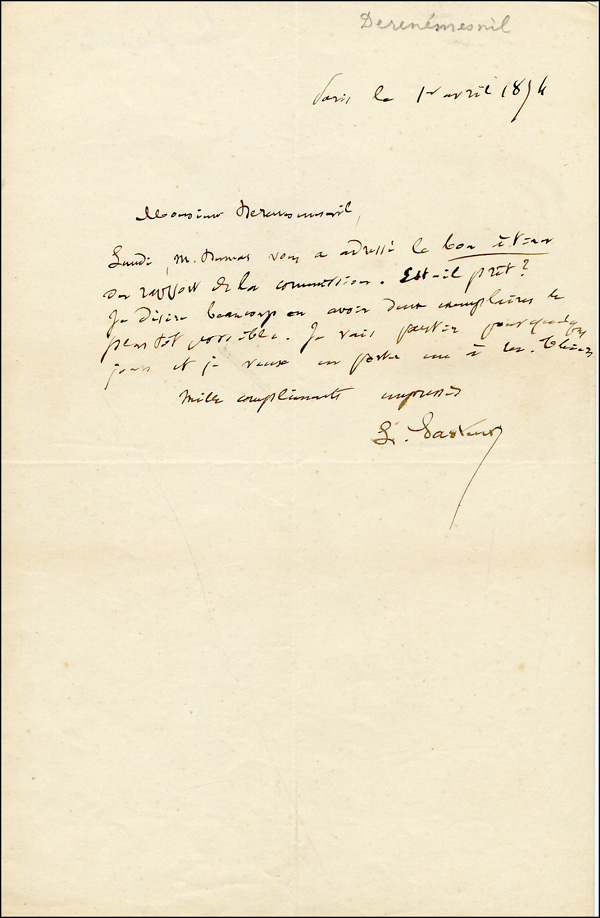 Derenémesnil
Paris le 1er avril 1874
Monsieur Derenemesnil,
Lundi, M. Dumas vous a adressé le bon à tirer
du rapport de la commission. Est-il prêt?
Je désire beaucoup en avoir deux exemplaires le
plus tôt possible. Je vais partir pour quelques
jours et je veux en porter un à
Mille compliments empressés
L. Pasteur